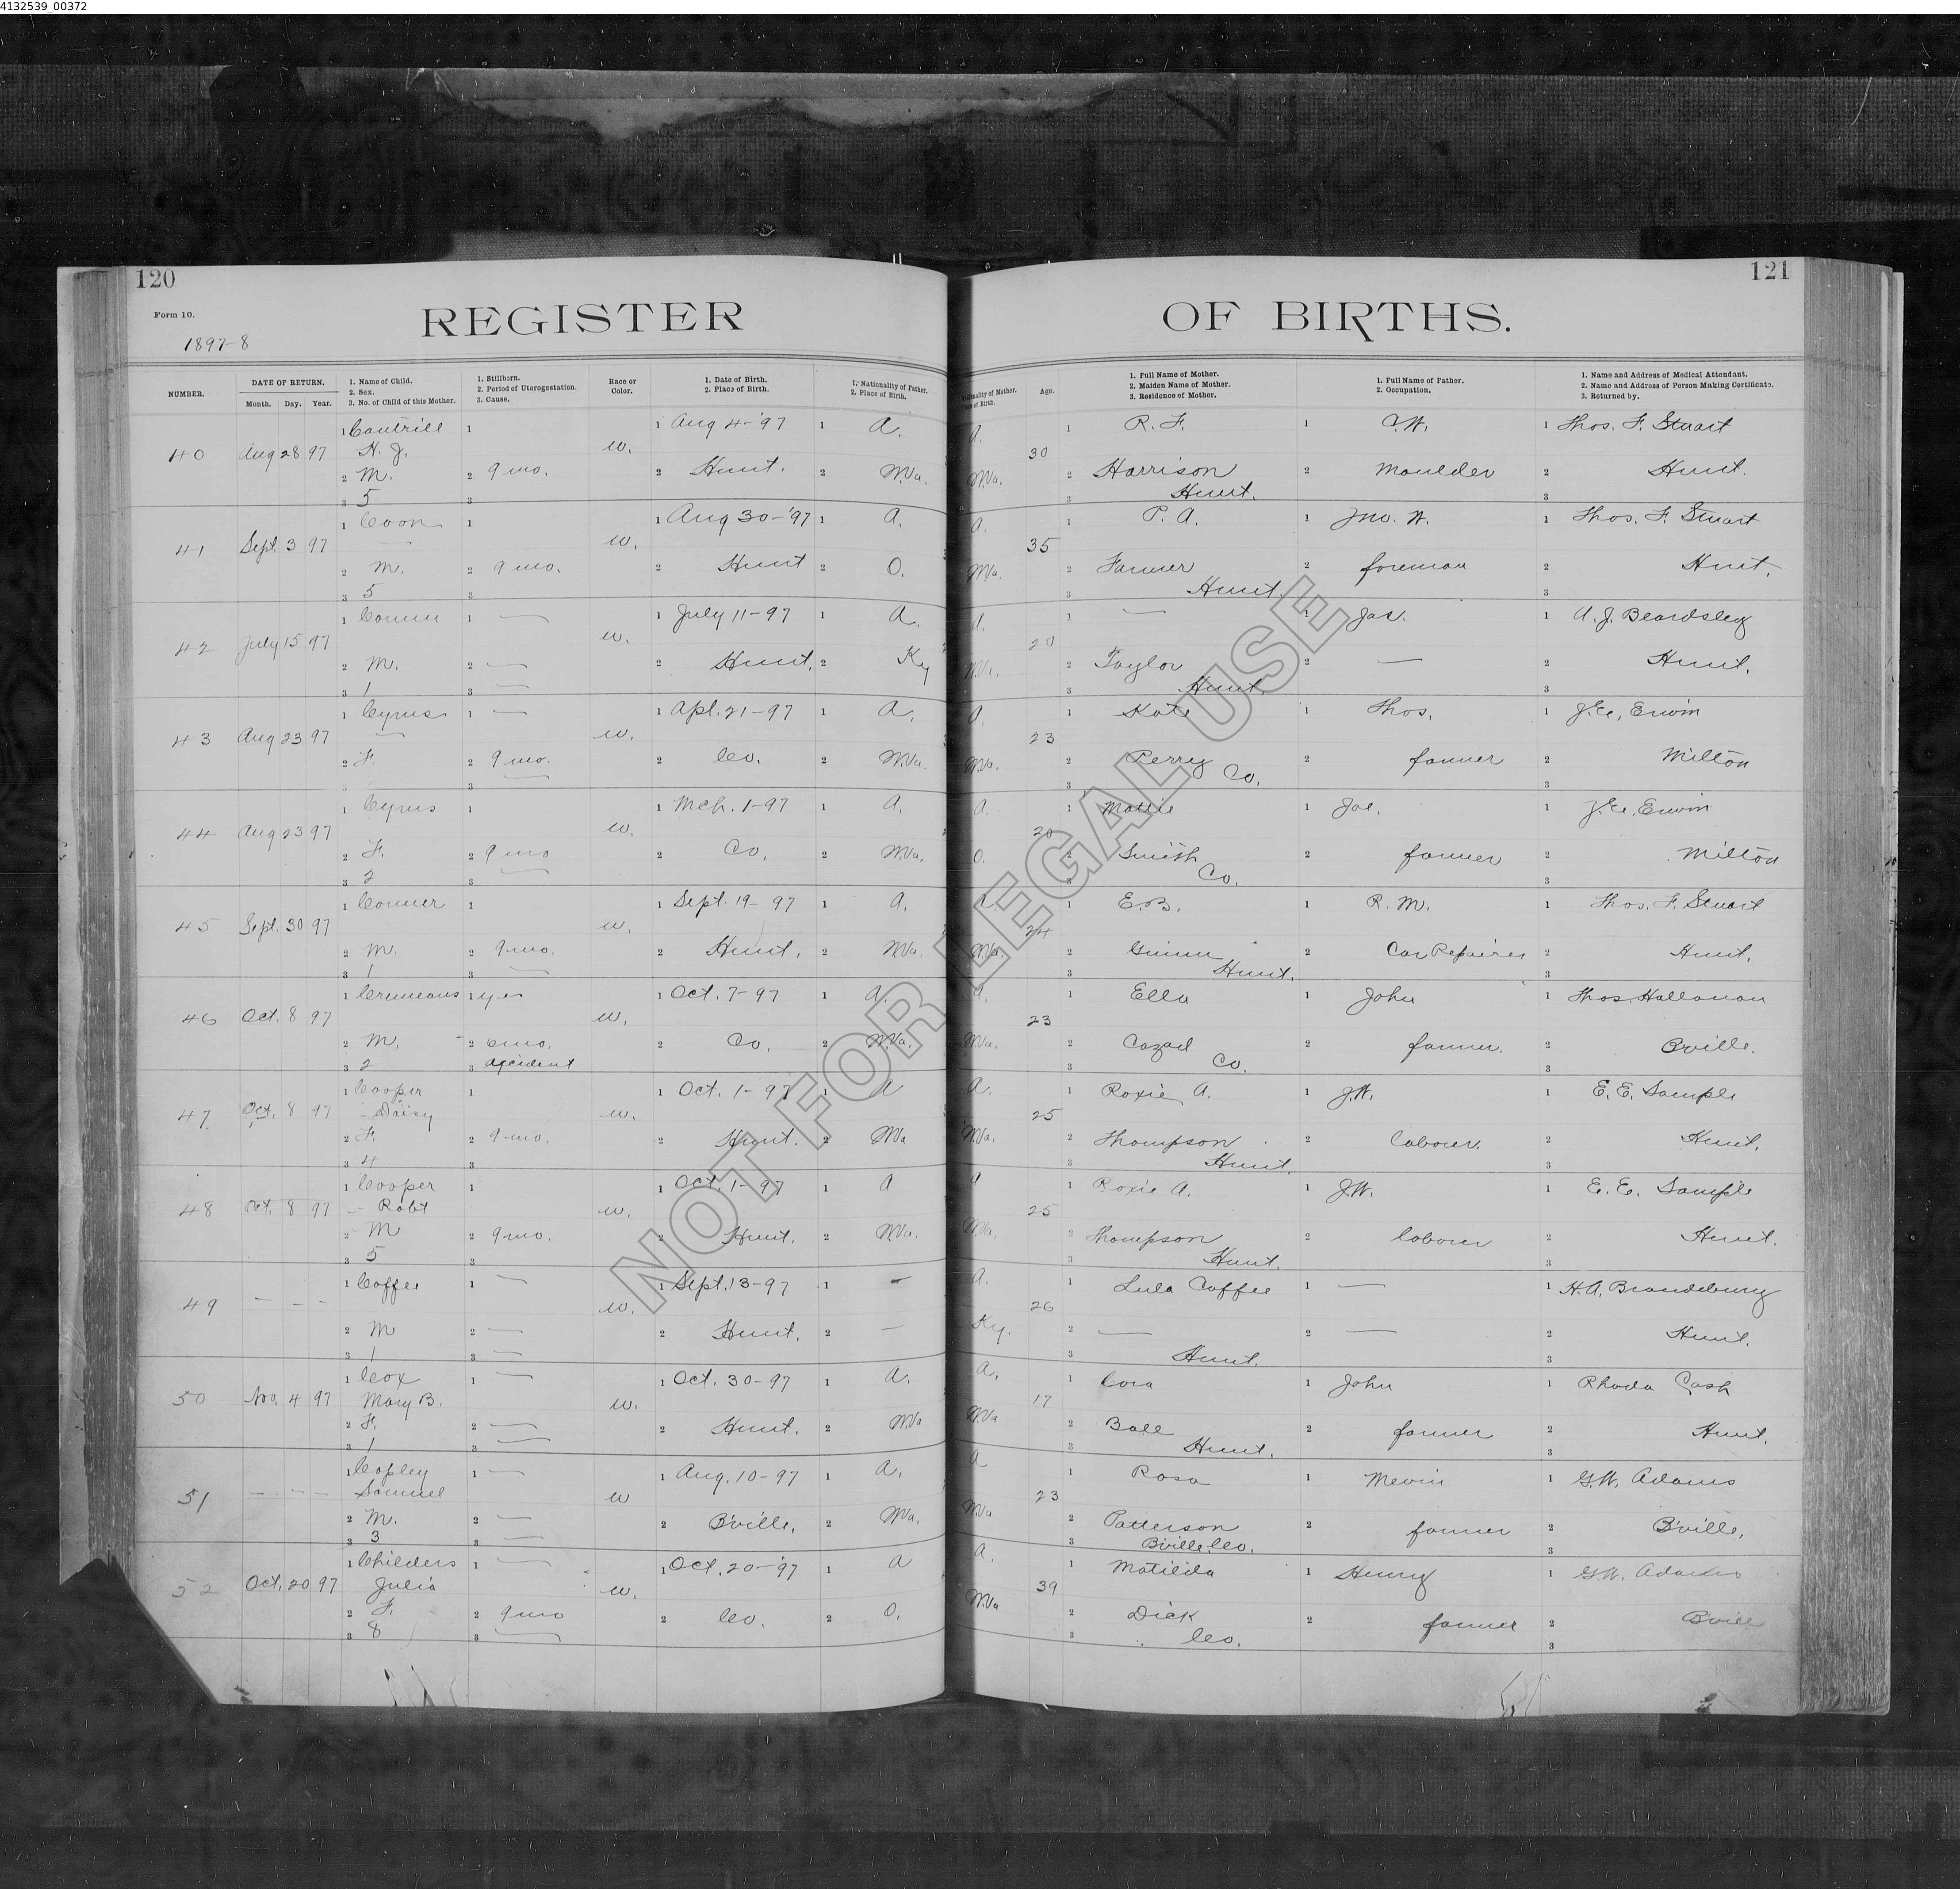 4132539_00372
120
121
Form 10.
REGISTER OF BIRTHS.
1897-8
NUMBER.
DATE OF RETURN.
Month. Day. Year.
1. Name of Child.
2. Sex.
3. No. of Child of this Mother.
1. Stillborn.
2. Period of Uterogestation.
3. Cause.
Race or Color.
1. Date of Birth.
2. Place of Birth.
1. Nationality of Father.
2. Place of Birth.
Age.
1. Full Name of Mother.
2. Maiden Name of Mother.
3. Residence of Mother.
1. Full Name of Father.
2. Occupation.
1. Name and Address of Medical Attendant.
2. Name and Address of Person Making Certificate.
3. Returned by.
1 Cantrill 1 1 Aug 4-'97 1 A. A. 1 R. F. 1 C.W. 1 Thos. F. Stuart
40 Aug 28 97 H. J. W. 30
2 M. 2 9 mo. 2 Hunt. 2 W.Va. W.Va. 2 Harrison 2 Moulder 2 Hunt.
3 5 3 3 Hunt. 3
1 Coon 1 1 Aug 30-'97 1 A. A. 1 P. A. 1 Jno. W. 1 Thos. F. Stuart
41 Sept. 3 97 — W. 35
2 M. 2 9 mo. 2 Hunt 2 O. W.Va. 2 Farmer 2 foreman 2 Hunt.
3 5 3 3 Hunt. 3
1 1 — 1 July 11-97 1 A. A. 1 — 1 Jas. 1 A. J. Beardsley
42 July 15 97 W. 20
2 M. 2 — 2 Hunt. 2 Ky W.Va. 2 Taylor 2 — 2 Hunt.
3 1 3 — 3 Hunt. 3
1 Cyrus 1 — 1 Apl. 21-97 1 A. A. 1 Kate 1 Thos. 1 Erwin
43 Aug 23 97 — W. 23
2 F. 2 9 mo. 2 Co. 2 W.Va. W.Va. 2 Perry 2 farmer 2 Milton
3 — 3 Co. 3
1 Cyrus 1 1 Mch. 1-97 1 A. A. 1 Mattie 1 Joe. 1 Erwin
44 Aug 23 97 W. 20
2 F. 2 9 mo 2 Co. 2 W.Va. O. 2 Smith 2 farmer 2 Milton
3 2 3 — 3 Co. 3
1 Conner 1 1 Sept. 19-97 1 A. A. 1 E.B. 1 R. M. 1 Thos. F. Stuart
45 Sept. 30 97 W. 24
2 M. 2 9 mo. 2 Hunt. 2 W.Va. W.Va. 2 2 Car Repairer 2 Hunt.
3 1 3 — 3 Hunt. 3
1 Cremeans 1 yes 1 Oct. 7-97 1 A. A. 1 Ella 1 John 1 Thos. Hallanan
46 Oct. 8 97 W. 23
2 M. 2 6 mo. 2 Co. 2 W.Va. W.Va. 2 Cazad 2 farmer. 2 Bville.
3 2 3 accident 3 Co. 3
1 Cooper 1 1 Oct. 1-97 1 A A. 1 Roxie A. 1 J.W. 1 E. E. Sample
47 Oct. 8 97 Daisy W. 25
2 F. 2 9 mo. 2 Hunt. 2 WVa W.Va. 2 Thompson 2 laborer. 2 Hunt.
3 4 3 3 Hunt. 3
1 Cooper 1 1 Oct. 1-97 1 A A 1 Roxie A. 1 J.W. 1 E. E. Sample
48 Oct. 8 97 Robt W. 25
2 M 2 9 mo. 2 Hunt. 2 W.Va. W.Va. 2 Thompson 2 laborer 2 Hunt.
3 5 3 3 Hunt. 3
1 Coffee 1 — 1 Sept. 13-97 1 — A. 1 Lula Coffee 1 — 1 H. A. Brandebury
49 — — — W. 26
2 M 2 — 2 Hunt. 2 — Ky. 2 — 2 — 2 Hunt.
3 1 3 — 3 Hunt. 3
1 Cox 1 — 1 Oct. 30-97 1 A. A. 1 Cora 1 John 1 Rhoda Cash
50 Nov. 4 97 Mary B. W. 17
2 F. 2 — 2 Hunt. 2 W.Va W.Va 2 Ball 2 farmer 2 Hunt.
3 1 3 — 3 Hunt. 3
1 Copley 1 — 1 Aug. 10-97 1 A. A 1 Rosa 1 Mevin 1 G.W. Adams
51 — — — Samuel W 23
2 M. 2 — 2 B'ville. 2 W.Va. W.Va 2 Patterson 2 farmer 2 B'ville.
3 3 3 — 3 B'ville, Co. 3
1 Childers 1 — 1 Oct. 20-'97 1 A A. 1 Matilda 1 Henry 1 G.W. Adams
52 Oct. 20 97 Julia W. 39
2 F. 2 9 mo 2 Co. 2 O. W.Va 2 Dick 2 farmer 2 Bvill
3 8 3 — 3 Co. 3
NOT FOR LEGAL USE